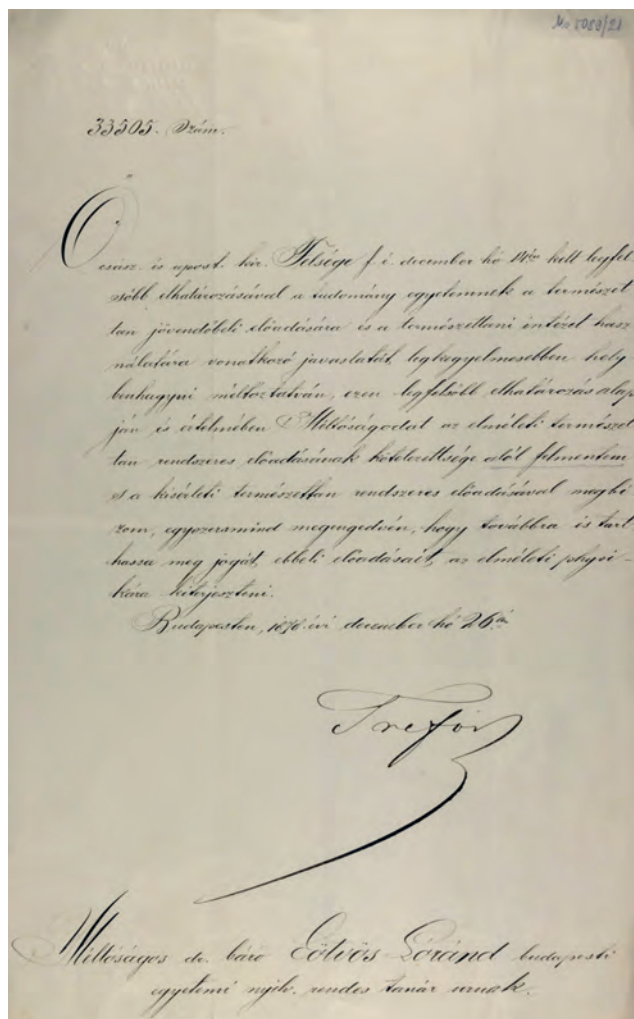 Ms 5089/21
33505. Szám.
Ő csász. és apost. kir. Felsége f. é. december hó 14én kelt legfel
sőbb elhatározásával a tudomány egyetemnek a természet
tan jövendőbeli előadására és a természettani intézet hasz
nálatára vonatkozó javaslatát legkegyelmesebben hely
benhagyni méltóztatván, ezen legfelsőbb elhatározás alap
ján és értelmében Méltóságodat az elméleti természet
tan rendszeres előadásának kötelezettsége alól felmentem
s a kisérleti természettan rendszeres előadásával megbi
zom, egyszersmind megengedvén, hogy továbbra is tart
hassa meg jogát, ebbeli előadásait, az elméleti physi-
kára kiterjeszteni.
Budapesten, 1878. évi december hó 26án
Trefort
Méltóságos dr. báró Eötvös Loránd budapesti
egyetemi nyilv. rendes tanár urnak.